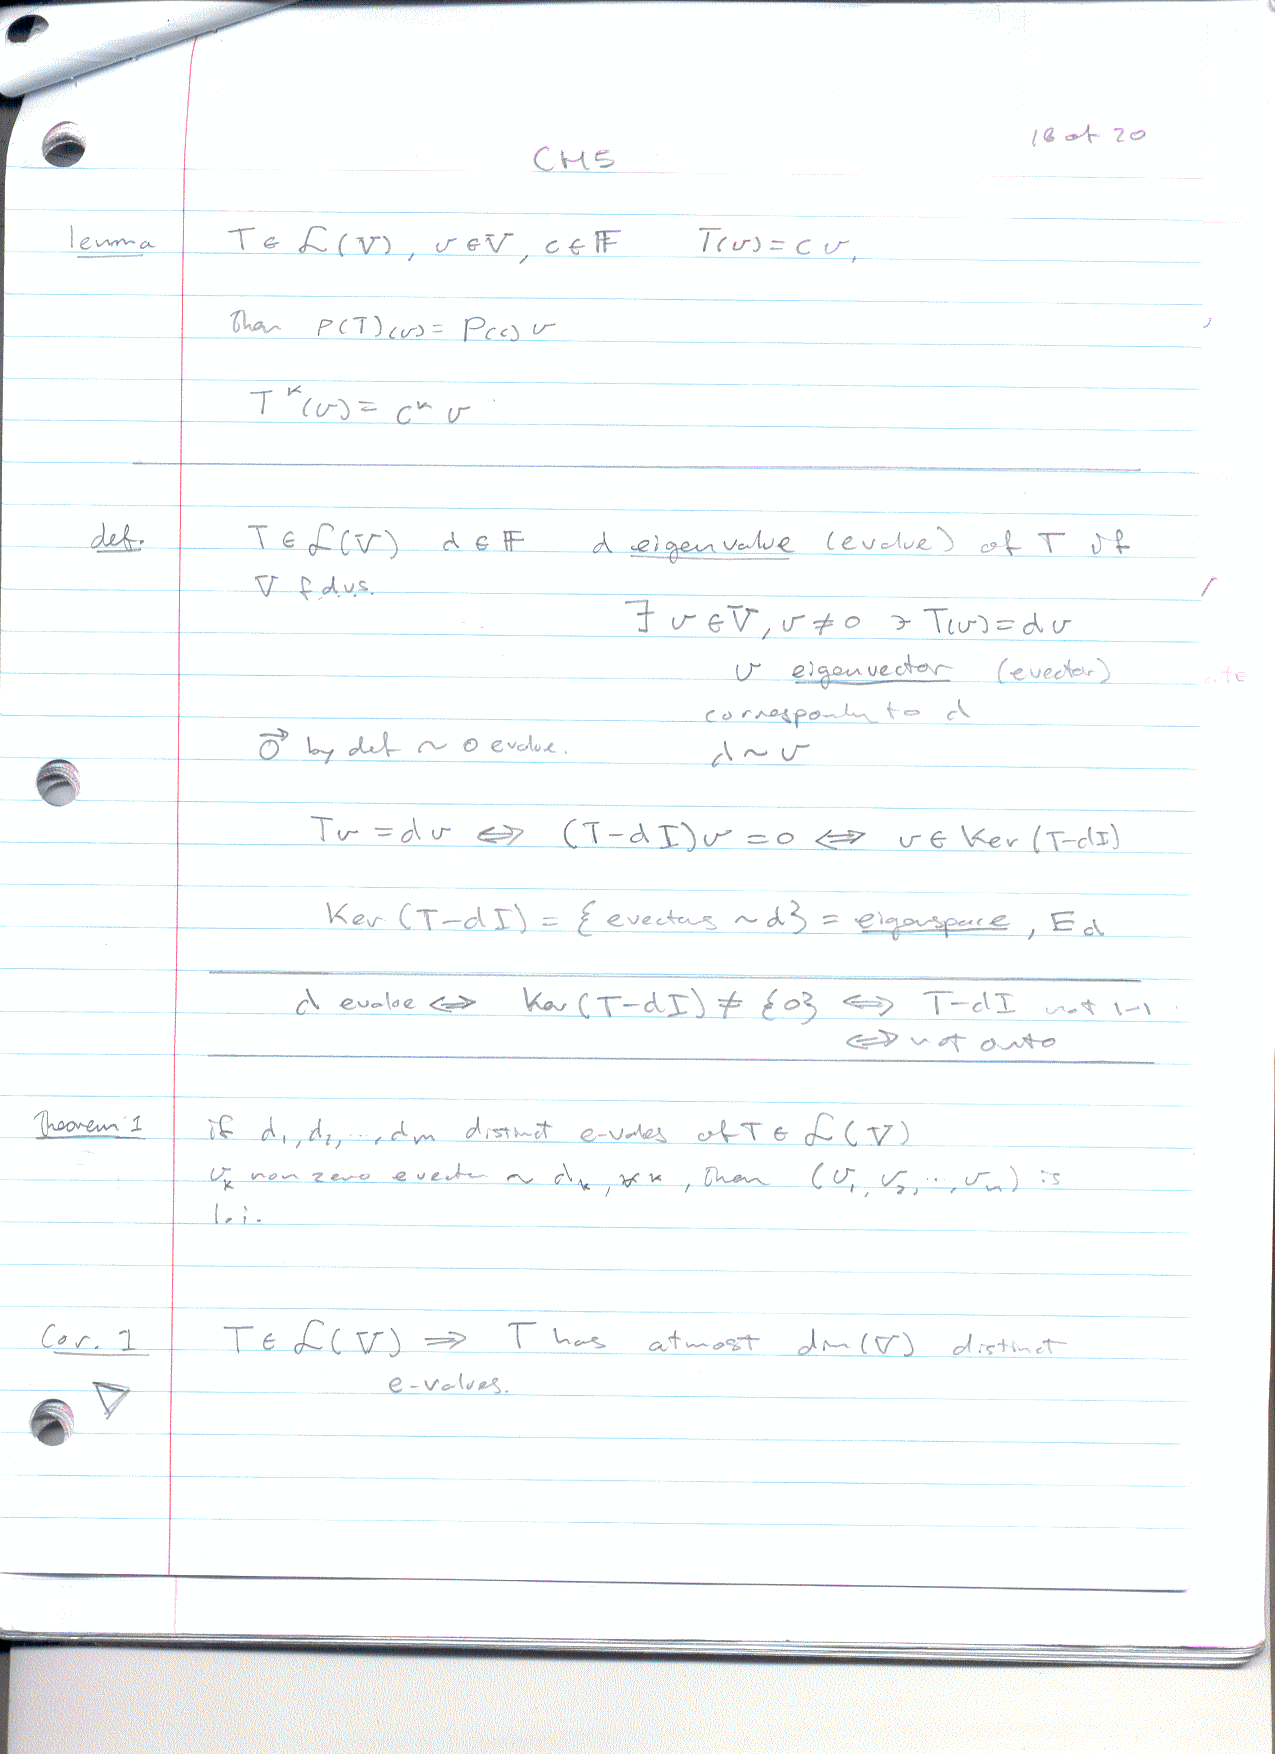 18 of 20
CH5
lemma T ∈ ℒ(V), v ∈ V, c ∈ 𝔽 T(v) = c v,
Then P(T)(v) = P(c) v
T^k(v) = c^k v
def. T ∈ ℒ(V) d ∈ 𝔽 d eigenvalue (evalue) of T if
V f.d.v.s.
∃ v ∈ V, v ≠ 0 ∍ T(v) = d v
v eigenvector (evector)
corresponds to d
0⃗ by def ~ 0 evalue. d ~ v
Tv = dv ⇔ (T-dI)v = 0 ⇔ v ∈ Ker(T-dI)
Ker(T-dI) = {evectors ~ d} = eigenspace, E_d
d evalue ⇔ Ker(T-dI) ≠ {0} ⇔ T-dI not 1-1
⇔ not onto
Theorem 1 if d₁, d₂, ..., dₘ distinct e-vales of T ∈ ℒ(V)
vₖ non zero evector ~ dₖ, ∀k, Then (v₁, v₂, ..., vₘ) is
l.i.
Cor. 1 T ∈ ℒ(V) ⇒ T has atmost dm(V) distinct
e-values.